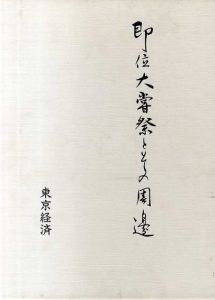 即位大嘗祭とその周邊
東京経済